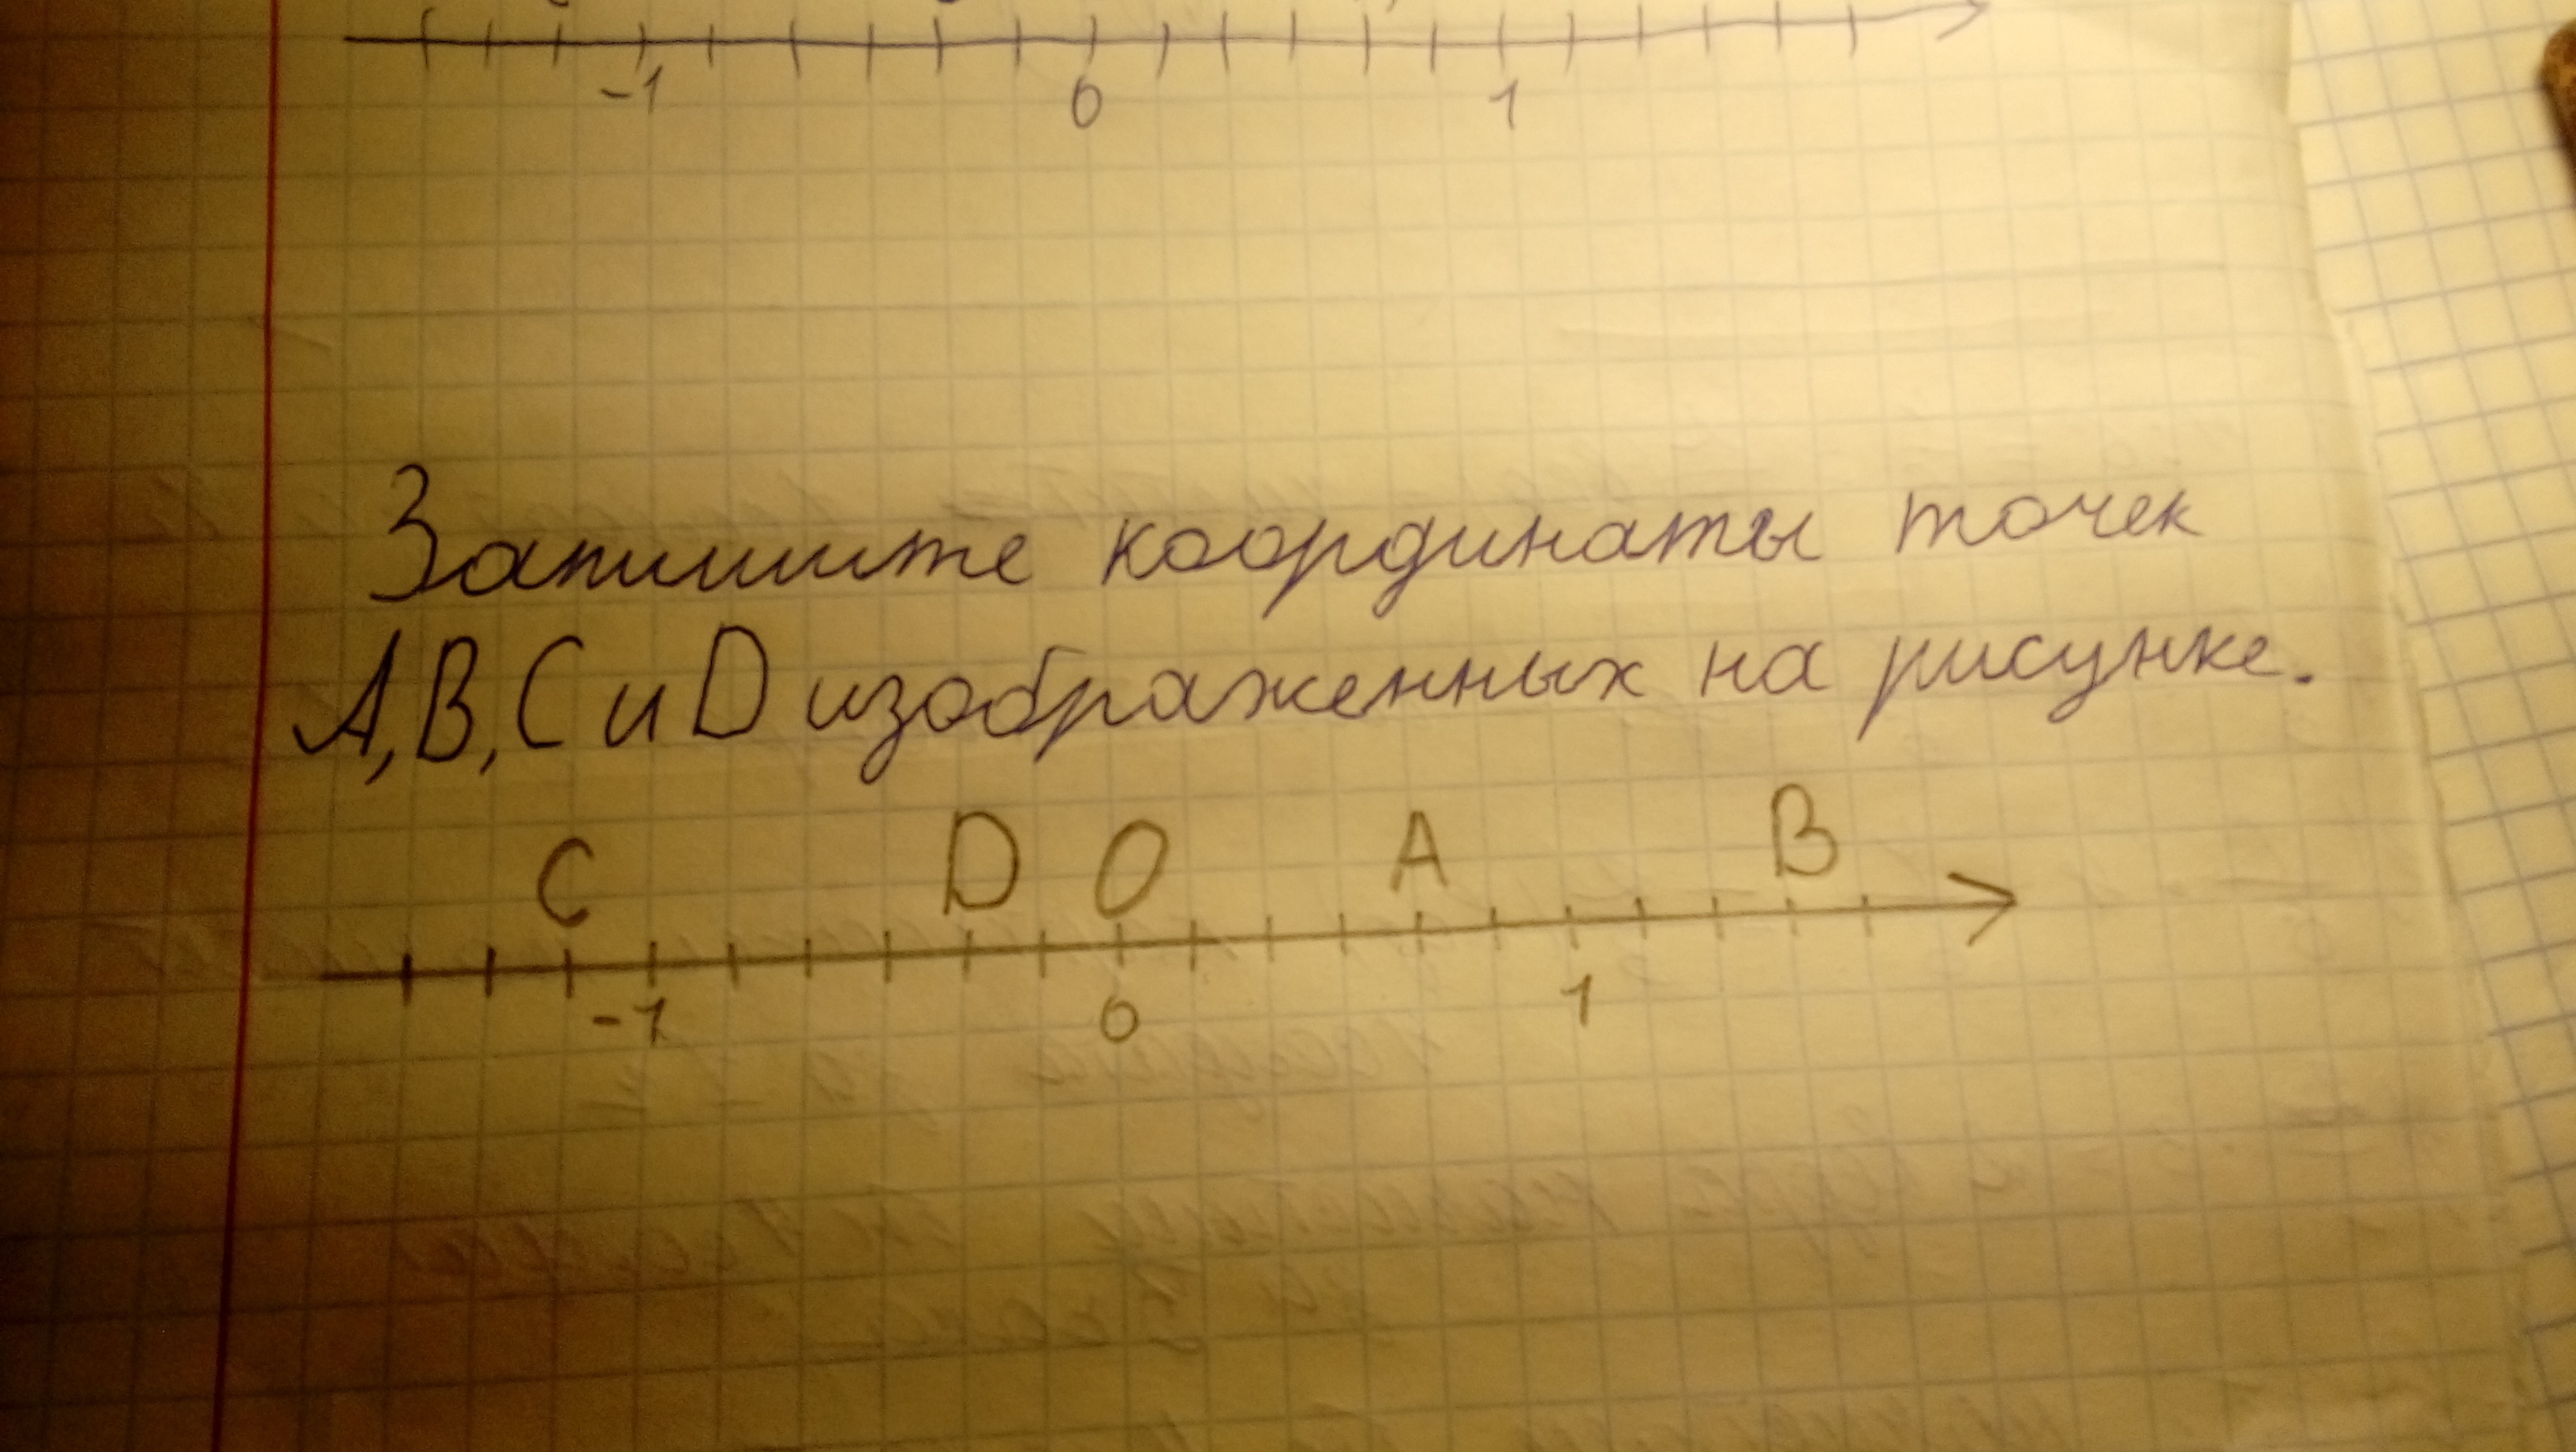 -1 0 1
Запишите координаты точек
A, B, C и D изображенных на рисунке.
C D O A B
-1 0 1